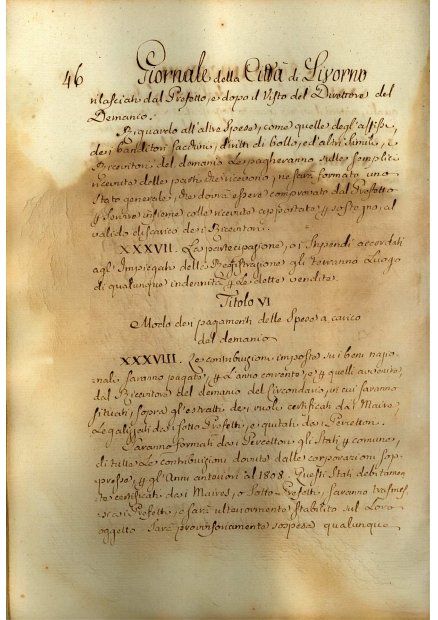 46 Giornale della Città di Livorno
rilasciati dal Prefetto, e dopo il Visto del Direttore del
Demanio.
Riguardo all'altre Spese, come quelle degl'affissi,
dei banditori, diritti di bollo, ed altri simili, i
Ricevitori del demanio le pagheranno sulle semplici
ricevute delle parti che riceverono, ne sarà formato uno
Stato generale, che dovrà essere comprovato dal Prefetto
insieme colle ricevute
valido discarico dei Ricevitori.
XXXVII. La partecipazione, o i Stipendi accordati
agl'Impiegati della Registrazione gli terranno Luogo
di qualunque indennità p le dette vendite.
Titolo VI
Modo dei pagamenti delle Spese a carico
del demanio
XXXVIII. Le contribuzioni imposte sui beni nazio
nali saranno pagate, p l'anno corrente, e p quelli avvenire
dal Ricevitore del demanio del Circondario, in cui saranno
situati, sopra gl'estratti dei ruoli certificati dai Maires,
Legalizzati dai Sotto Prefetti, e quitati dai Percettori.
Saranno formati dai Percettori gli Stati p comune,
di tutte le contribuzioni dovute dalle corporazioni sop-
presse, p gl'Anni anteriori al 1808. Questi Stati debitamen
te certificati dai Maires, o Sotto Prefetti, saranno trasmes
si ai Prefetti, e sarà ulteriormente stabilito sul Loro
oggetto. Sarà provvisoriamente sospesa qualunque